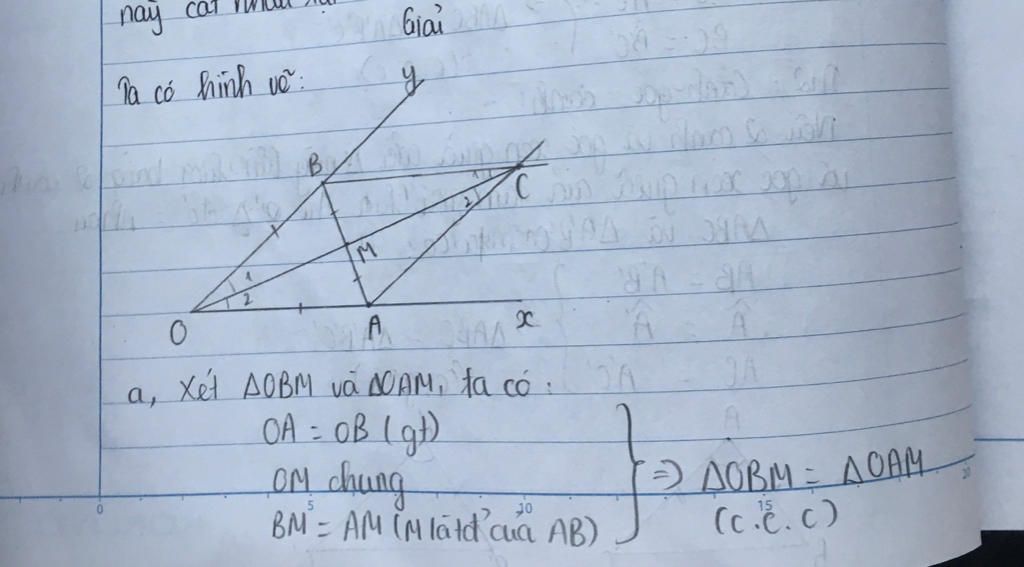 này cắt nhau
Giải
Ta có hình vẽ:
y
B
1
C
2
M
1
2
O
A
x
a, Xét ΔOBM và ΔOAM, ta có:
OA = OB (gt)
OM chung
BM = AM (M là tđ của AB)
⇒ ΔOBM = ΔOAM
(c.c.c)
0 5 10 15 20